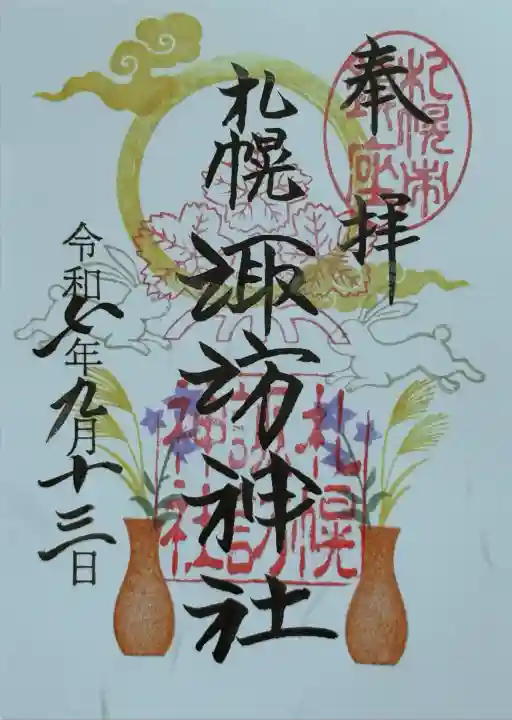 奉拝
札幌市
鎮座
札幌
諏訪神社
札幌
諏訪
神社
令和七年九月十三日